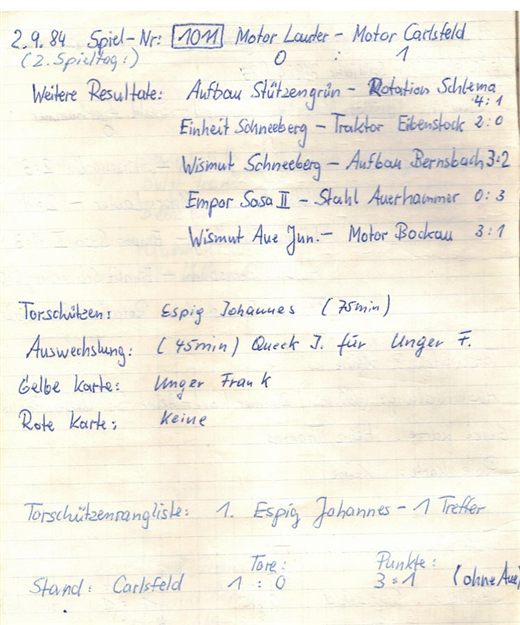 2.9.84 Spiel-Nr: 1011 Motor Lauter - Motor Carlsfeld
(2. Spieltag:) 0 : 1
Weitere Resultate: Aufbau Stützengrün - Rotation Schlema
4:1
Einheit Schneeberg - Traktor Eibenstock 2:0
Wismut Schneeberg - Aufbau Bernsbach 3:2
Empor Sosa II - Stahl Auerhammer 0:3
Wismut Aue Jun. - Motor Bockau 3:1
Torschützen: Espig Johannes (75min)
Auswechslung: (45min) Queck J. für Unger F.
Gelbe Karte: Unger Frank
Rote Karte: Keine
Torschützenrangliste: 1. Espig Johannes - 1 Treffer
Tore: Punkte:
Stand: Carlsfeld 1:0 3:1 (ohne Aue)